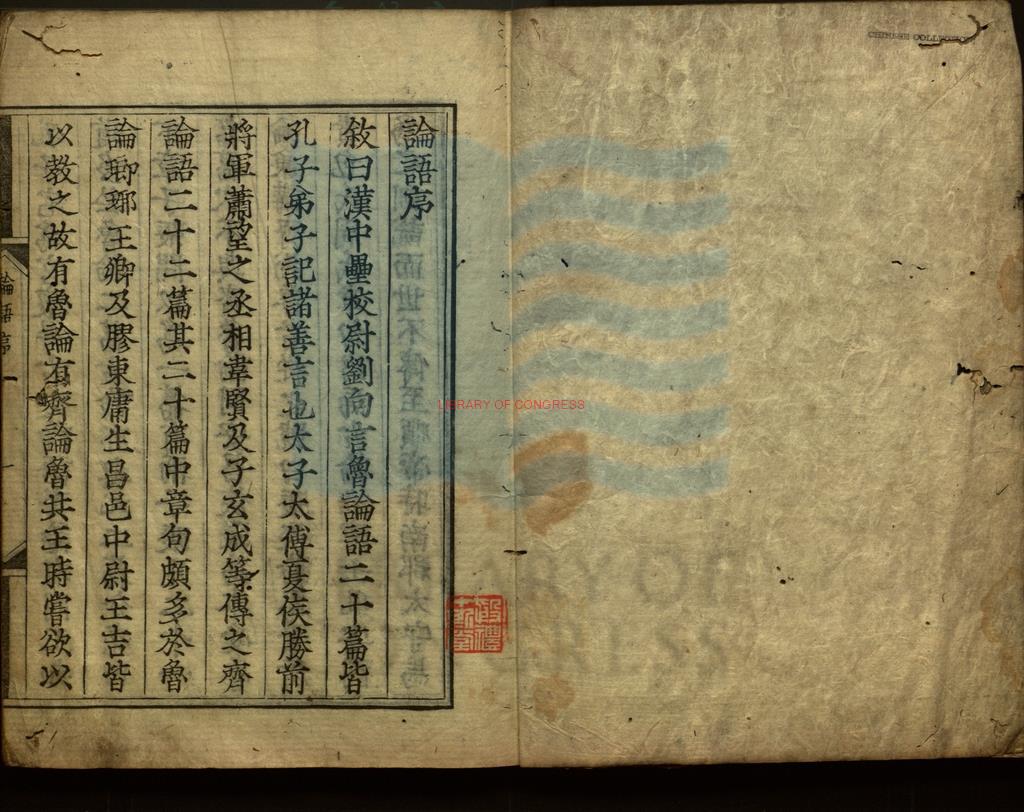 論語序
敘曰漢中壘校尉劉向言魯論語二十篇皆
孔子弟子記諸善言也太子太傅夏侯勝前
將軍蕭望之丞相韋賢及子玄成等傳之齊
論語二十二篇其二十篇中章句頗多於魯
論瑯琊王卿及膠東庸生昌邑中尉王吉皆
以教之故有魯論有齊論魯共王時嘗欲以
論語序
CHINESE COLLECTION
LIBRARY OF CONGRESS